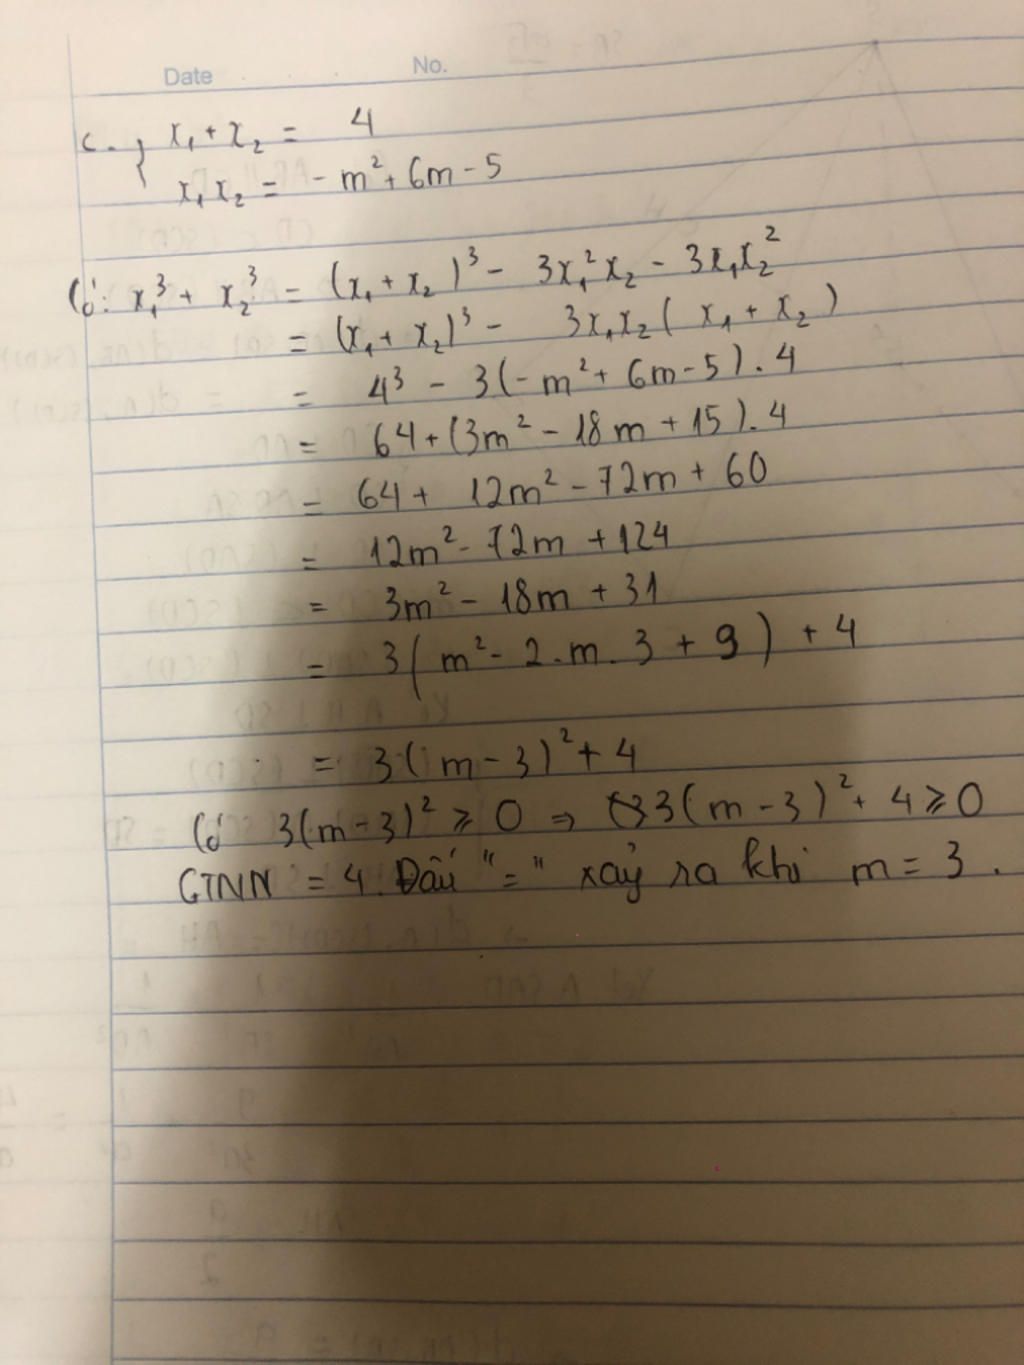 Date No.
c. { x₁ + x₂ = 4
x₁x₂ = -m² + 6m - 5
Có: x₁³ + x₂³ = (x₁ + x₂)³ - 3x₁²x₂ - 3x₁x₂²
= (x₁ + x₂)³ - 3x₁x₂(x₁ + x₂)
= 4³ - 3(-m² + 6m - 5).4
= 64 + (3m² - 18m + 15).4
= 64 + 12m² - 72m + 60
= 12m² - 72m + 124
= 3m² - 18m + 31
= 3(m² - 2.m.3 + 9) + 4
= 3(m - 3)² + 4
Có 3(m - 3)² ≥ 0 ⇒ 3(m - 3)² + 4 ≥ 0
GTNN = 4. Dấu "=" xảy ra khi m = 3.